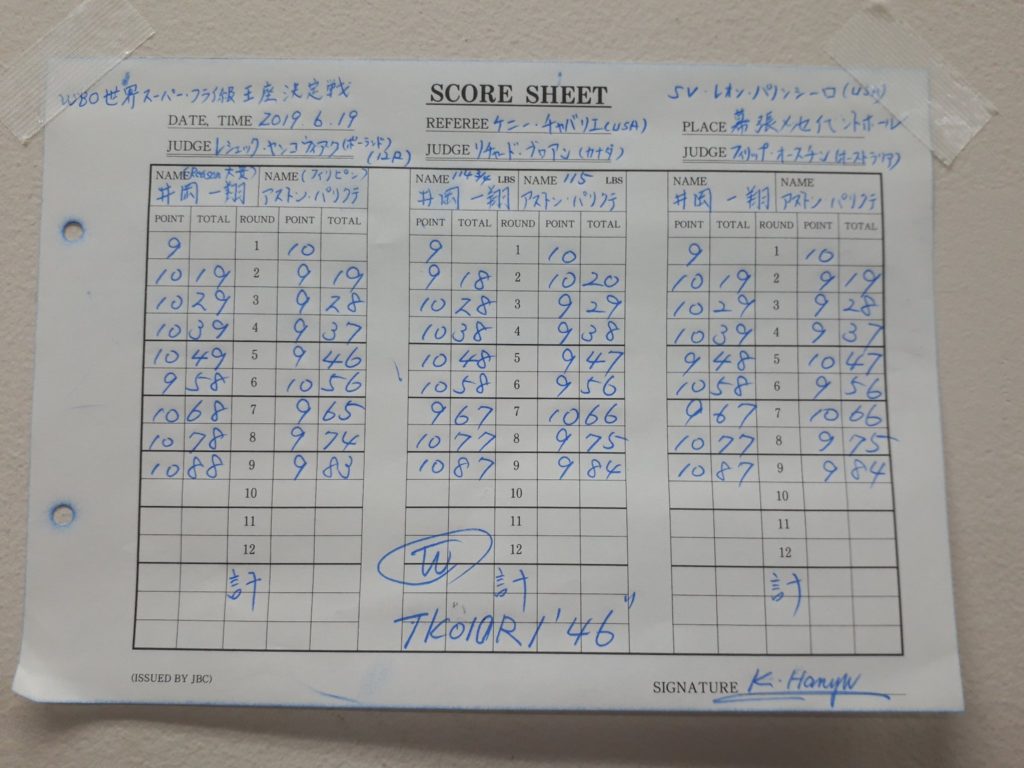 WBO世界スーパー・フライ級王座決定戦 SCORE SHEET SV・レオン・パノンシーロ(USA)
DATE, TIME 2019.6.19 REFEREE ケニー・チャバリエ(USA) PLACE 幕張メッセイベントホール
JUDGE レシェック・ヤンコヴィアク(ポーランド) (12R) JUDGE リチャード・ブロアン(カナダ) JUDGE フィリップ・オースチン(オーストラリア)
NAME (Reason大貴) NAME (フィリピン) NAME 114 3/4 LBS NAME 115 LBS NAME NAME
井岡 一翔 アストン・パリクテ 井岡 一翔 アストン・パリクテ 井岡 一翔 アストン・パリクテ
POINT TOTAL ROUND POINT TOTAL POINT TOTAL ROUND POINT TOTAL POINT TOTAL ROUND POINT TOTAL
9 1 10 9 1 10 9 1 10
10 19 2 9 19 9 18 2 10 20 10 19 2 9 19
10 29 3 9 28 10 28 3 9 29 10 29 3 9 28
10 39 4 9 37 10 38 4 9 38 10 39 4 9 37
10 49 5 9 46 10 48 5 9 47 9 48 5 10 47
9 58 6 10 56 10 58 6 9 56 10 58 6 9 56
10 68 7 9 65 9 67 7 10 66 9 67 7 10 66
10 78 8 9 74 10 77 8 9 75 10 77 8 9 75
10 88 9 9 83 10 87 9 9 84 10 87 9 9 84
10 10 10
11 11 11
12 W 12 12
計 計 計
TKO10R 1'46"
(ISSUED BY JBC) SIGNATURE K. Hanyu